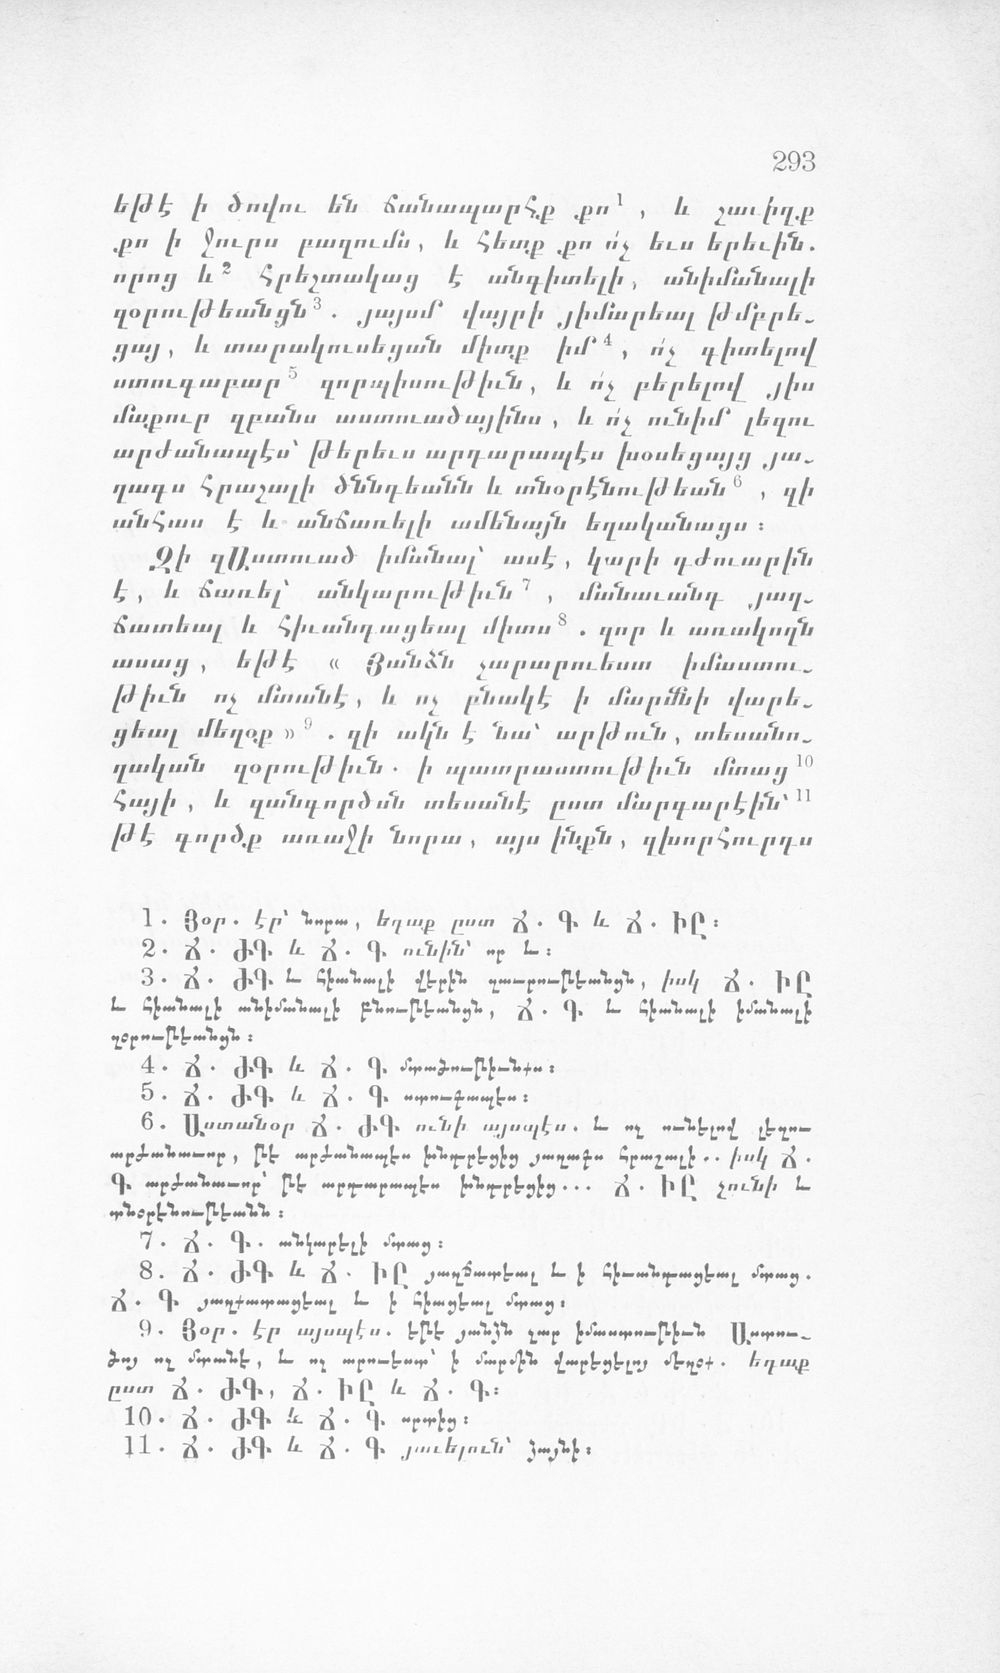 293
եթէ ի ծովու են ճանապարհք քո¹, և շաւիղք
քո ի ջուրս բազումս, և հետք քո ո՛չ եւս երեւին.
որոց և² հրեշտակաց է անգիտելի, անիմանալի
զօրութեանցն³. յայսմ վայրի յիմարեալ թմբրե֊
ցայ, և տարակուսեցան միտք իմ⁴, ո՛չ գիտելով
ստուգաբար⁵ զորպիսութիւն, և ո՛չ բերելով յիս
մաքուր զբանս աստուածայինս, և ո՛չ ունիմ լեզու
արժանապէս՝ թերեւս արդարապէս խօսեցայց յա֊
ղագս հրաշալի ծննդեանն և տնօրէնութեան⁶, զի
անհաս է և անճառելի ամենայն եղականացս։
Զի զԱստուած իմանալ՝ ասէ, կարի դժուարին
է, և ճառել՝ անկարութիւն⁷, մանաւանդ յաղ֊
ճատեալ և հիւանդացեալ միտս⁸. զոր և առակողն
ասաց, եթէ « Յանձն չարարուեստ իմաստու֊
թիւն ոչ մտանէ, և ոչ բնակէ ի մարմնի վարե֊
ցեալ մեղօք »⁹. զի ակն է նա՝ արթուն, տեսանո֊
ղական զօրութիւն. ի պատրաստութիւն մտաց¹⁰
հայի, և զանգործսն տեսանէ ըստ մարդարէին՝¹¹
թէ գործք առաջի նորա, այս ինքն, զխորհուրդս
1. Յօր. էր՝ նորա, եղաք ըստ Ճ. Գ և Ճ. ԻԸ։
2. Ճ. ԺԳ և Ճ. Գ ունին՝ որ և։
3. Ճ. ԺԳ և հիանալի վերին զաւրութեանցն, իսկ Ճ. ԻԸ
և հիանալի անիմանալի բնութեանցն, Ճ. Գ և հիանալի իմանալի
զօրութեանցն։
4. Ճ. ԺԳ և Ճ. Գ մտածութիւնքս։
5. Ճ. ԺԳ և Ճ. Գ ստուգապէս։
6. Աստանօր Ճ. ԺԳ ունի այսպէս. և ոչ ունելով լեզու
արժանաւոր, թէ արժանապէս խնդրեցից յաղագս հրաշալի.. իսկ Ճ.
Գ արժանաւոր՝ թէ արդարապէս խնդրեցից... Ճ. ԻԸ չունի և
տնօրէնութեանն։
7. Ճ. Գ. անկարելի մտաց։
8. Ճ. ԺԳ և Ճ. ԻԸ յաղճատեալ և ի հիւանդացեալ մտաց.
Ճ. Գ յաղքատացեալ և ի հիացեալ մտաց։
9. Յօր. էր այսպէս. եթէ յանձն չար իմաստութիւն Աստու֊
ծոյ ոչ մտանէ, և ոչ արուեստ՝ ի մարմին վարեցելոյ մեղօք. եդաք
ըստ Ճ. ԺԳ, Ճ. ԻԸ և Ճ. Գ։
10. Ճ. ԺԳ և Ճ. Գ սրտից։
11. Ճ. ԺԳ և Ճ. Գ յաւելուն՝ ձայնի։